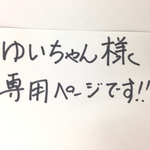 ゆいちゃん様
専用ページです!!